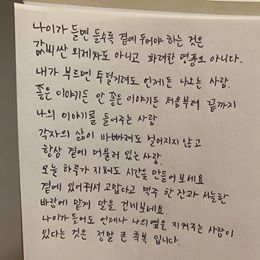 나이가 들면 들수록 곁에 두어야 하는 것은
값비싼 외제차도 아니고 화려한 명품도 아니다.
내가 부르면 투덜거려도 언제든 나오는 사람.
좋은 이야기든 안 좋은 이야기든 처음부터 끝까지
나의 이야기를 들어주는 사람
각자의 삶이 바빠져도 멀어지지 않고
항상 곁에 머물러 있는 사람.
오늘 하루가 지쳐도 시간을 만들어보세요
곁에 있어줘서 고맙다고 맥주 한 잔과 서늘한
바람에 맡겨 말을 건네보세요
나이가 들어도 언제나 나의 옆을 지켜주는 사람이
있다는 것은 정말 큰 축복 입니다.